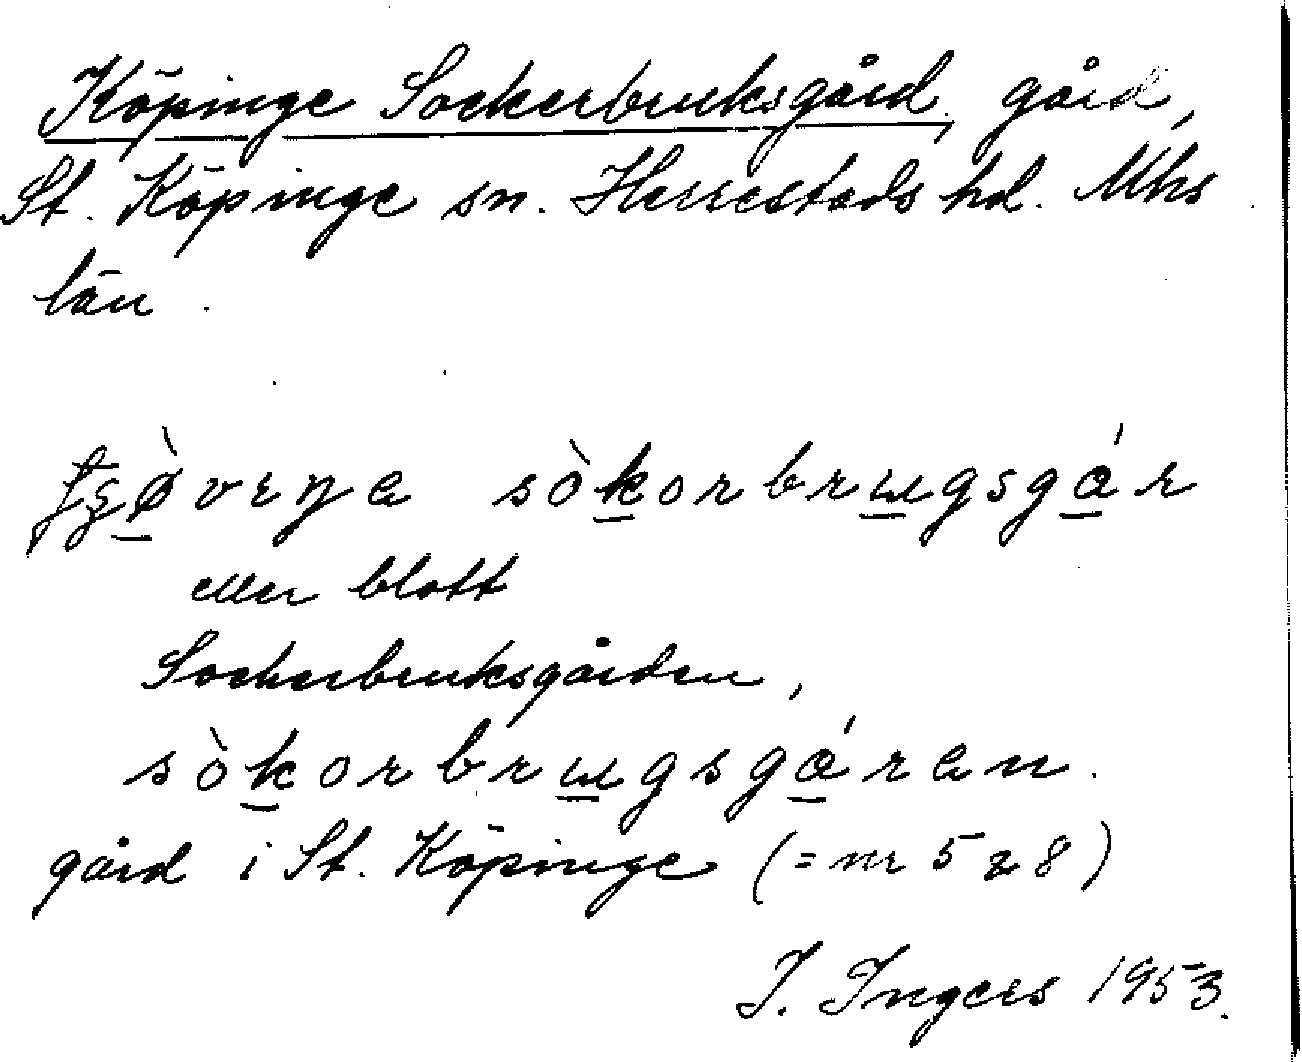 Köpinge Sockerbruksgård, gård,
St. Köpinge sn. Herrestads hd. Mhs
län.
sòkorbrugsgár
eller blott
Sockerbruksgården,
sòkorbrugsgáren.
gård i St. Köpinge (= nr 5 o 8)
I. Ingers 1953.